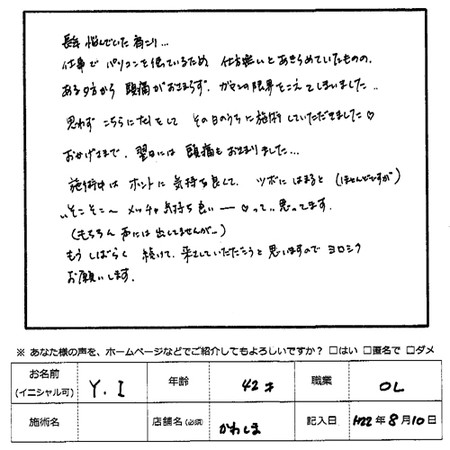 長年 悩んでいた肩こり…
仕事で パソコンを使っているため 仕方無いとあきらめていたものの、
ある夕方から 頭痛がおさまらず、ガマンの限界をこえてしまいました…
思わず こちらにtelをして その日のうちに施術していただきました♡
おかげさまで、翌日には 頭痛もおさまりました…
施術中は ホントに気持ち良くて、ツボにはまると (ほとんどですが)
"そこそこ〜 メッチャ気持ち良いー♡って"思ってます。
(もちろん 声には出してませんが…)
もうしばらく 続けて、来させていただこうと思いますので ヨロシク
お願いします。
※ あなた様の声を、ホームページなどでご紹介してもよろしいですか？ □はい □匿名で □ダメ
お名前 (イニシャル可) Y.I 年齢 42才 職業 OL
施術名 店舗名(必須) かわしま 記入日 H22年8月10日